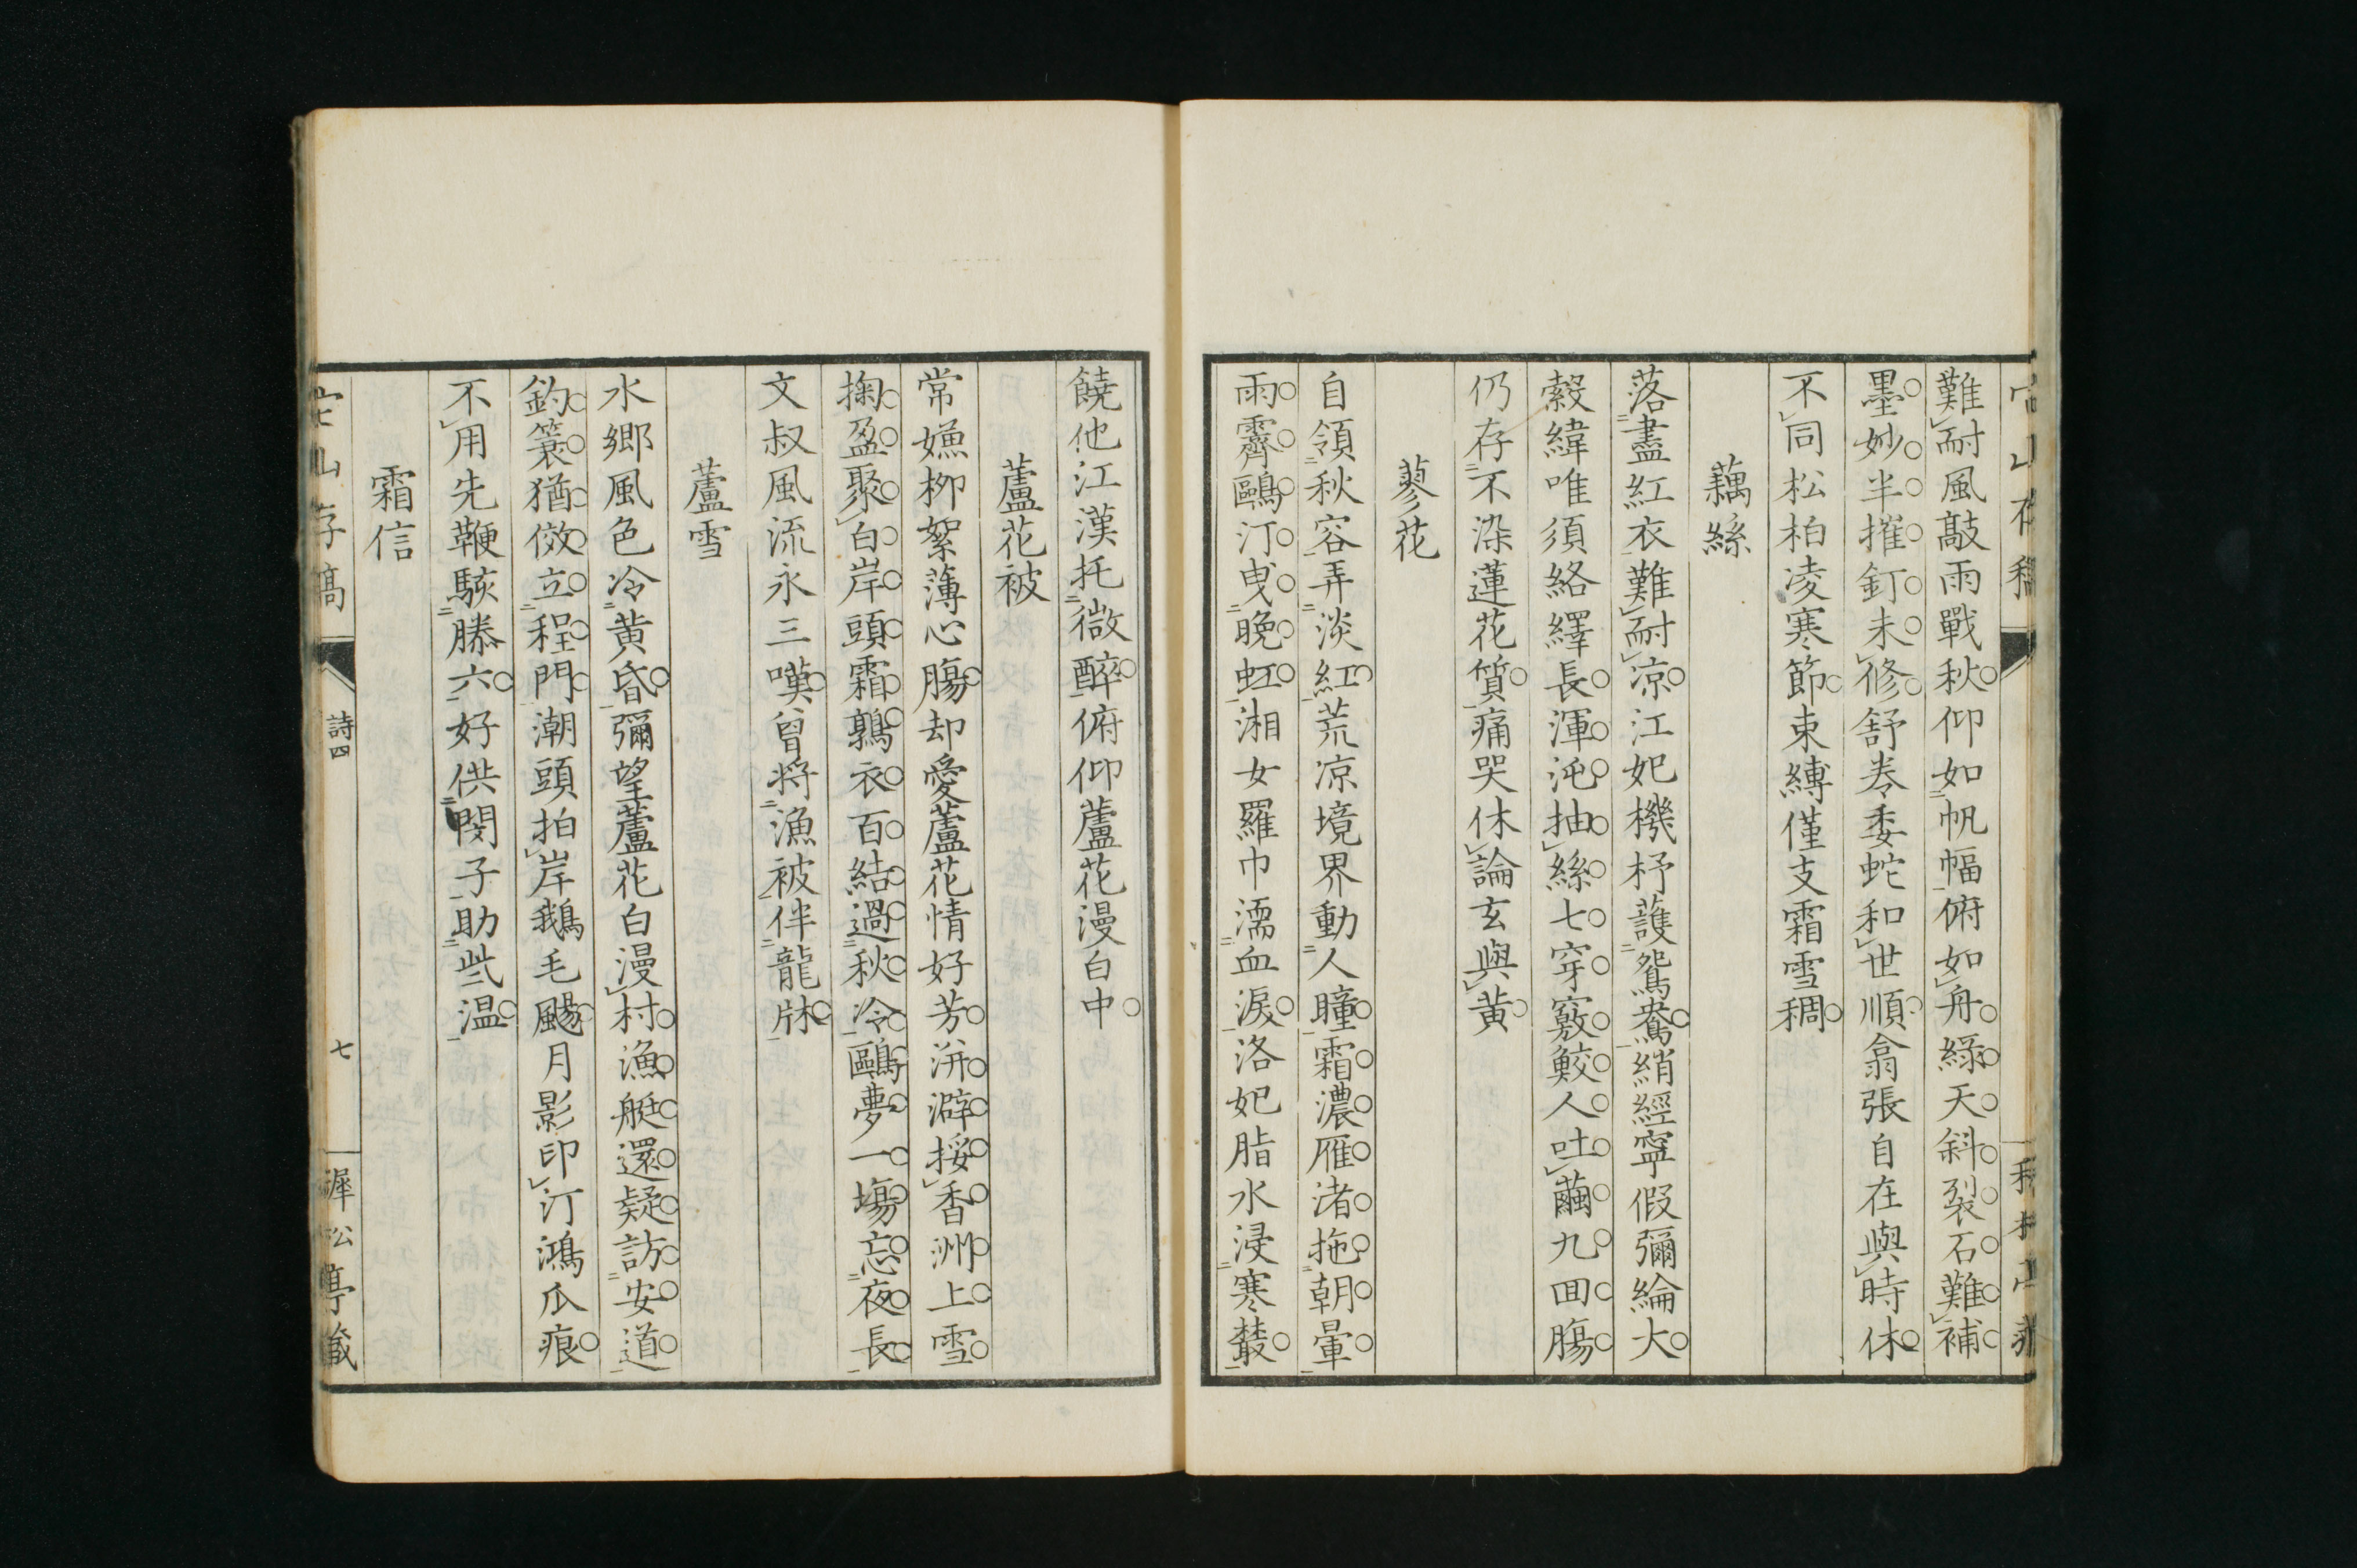 難耐風敲雨戰秋仰如帆幅俯如舟綠天斜裂石難補
墨妙半摧釘未修舒卷委蛇和世順翕張自在與時休
不同松柏凌寒節束縛僅支霜雪稠
藕絲
落盡紅衣難耐凉江妃機杼護鴛鴦綃經寧假彌綸大
縠緯唯須絡繹長渾沌抽絲七穿竅鮫人吐繭九回膓
仍存不染蓮花質痛哭休論玄與黃
蓼花
自領秋容弄淡紅荒凉境界動人瞳霜濃雁渚拖朝暈
雨霽鷗汀曳晚虹湘女羅巾濡血淚洛妃脂水浸寒叢
饒他江漢托微醉俯仰蘆花漫白中
蘆花被
常嫌柳絮薄心膓却愛蘆花情好芳洴澼挼香洲上雪
掬盈聚白岸頭霜鶉衣百結過秋冷鷗夢一場忘夜長
文叔風流永三嘆曾將漁被伴龍牀
蘆雪
水鄉風色冷黃昏彌望蘆花白漫村漁艇還疑訪安道
釣簑猶傚立程門潮頭拍岸鵝毛颺月影印汀鴻爪痕
不用先鞭駭滕六好供閔子助些温
霜信
詩四
七